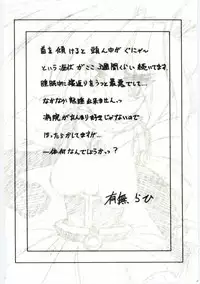 首を傾けると頭ん中がぐにゃ〜
という症状がここ3週間くらい続いてます。
睡眠时に寝返りをうつと最悪でして…
なかなか熟睡出来ませんっ
病院があんまり好きじゃないので
ほったらかしてますが…
一体何なんでしょうかっ?
有無らひ